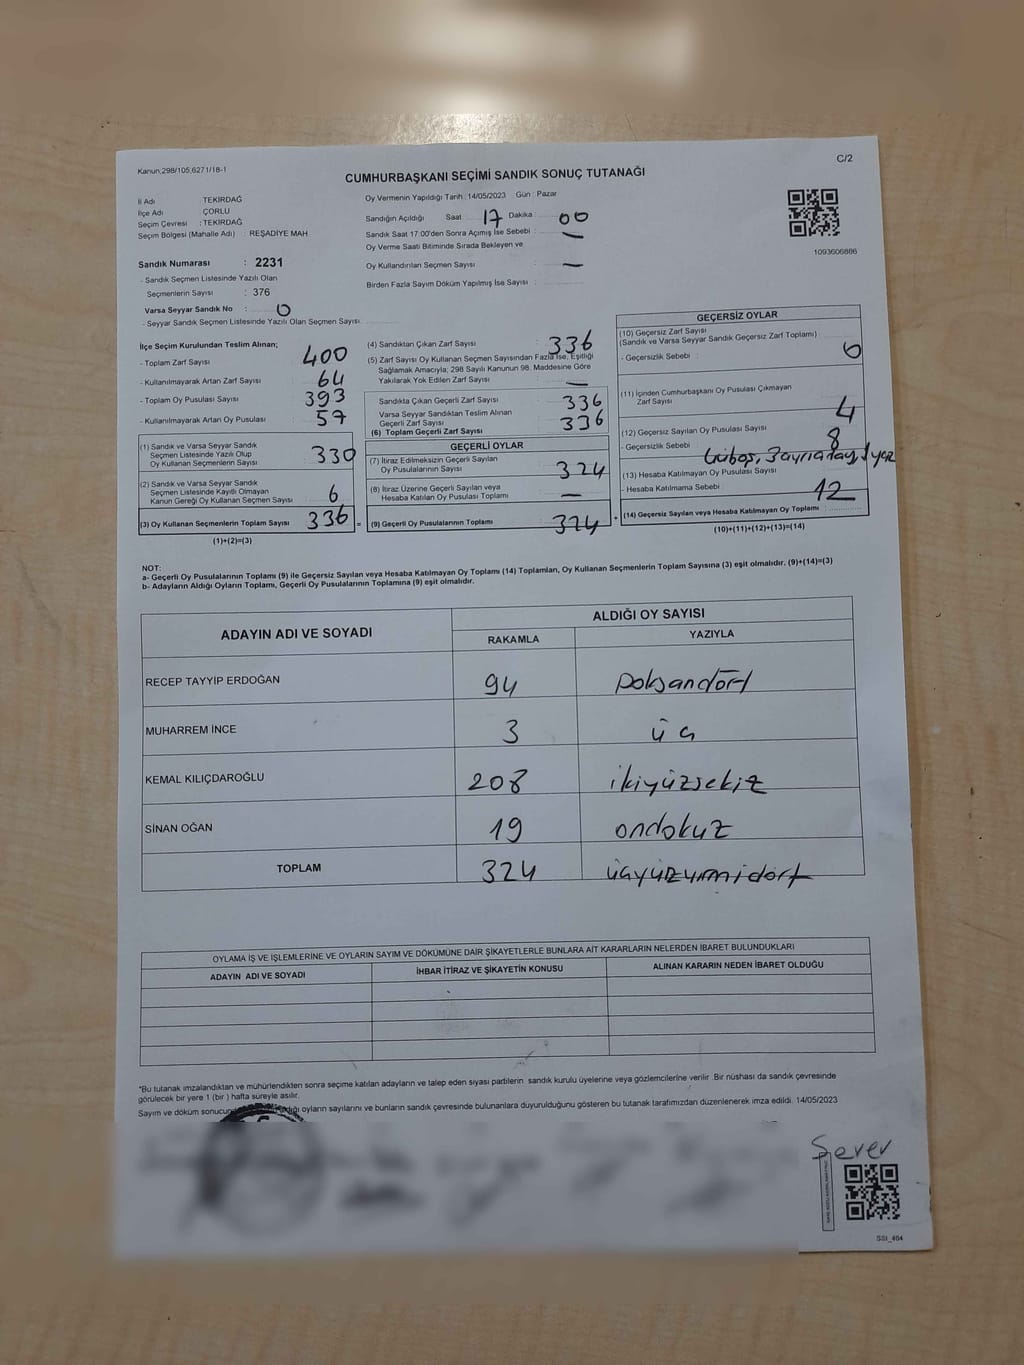 Kanun,298/105,6271/18-1
C/2
CUMHURBAŞKANI SEÇİMİ SANDIK SONUÇ TUTANAĞI
İl Adı TEKİRDAĞ
İlçe Adı ÇORLU
Seçim Çevresi : TEKİRDAĞ
Seçim Bölgesi (Mahalle Adı) : REŞADİYE MAH
Oy Vermenin Yapıldığı Tarih : 14/05/2023 Gün : Pazar
Sandığın Açıldığı Saat 17 Dakika : 00
Sandık Saat 17:00'den Sonra Açımış İse Sebebi : —
Oy Verme Saati Bitiminde Sırada Bekleyen ve
Oy Kullandırılan Seçmen Sayısı : —
Birden Fazla Sayım Döküm Yapılmış İse Sayısı :
1093606886
Sandık Numarası : 2231
- Sandık Seçmen Listesinde Yazılı Olan
Seçmenlerin Sayısı : 376
Varsa Seyyar Sandık No : 0
- Seyyar Sandık Seçmen Listesinde Yazılı Olan Seçmen Sayısı
İlçe Seçim Kurulundan Teslim Alınan;
- Toplam Zarf Sayısı : 400
- Kullanılmayarak Artan Zarf Sayısı : 64
- Toplam Oy Pusulası Sayısı : 393
- Kullanılmayarak Artan Oy Pusulası : 57
(1) Sandık ve Varsa Seyyar Sandık
Seçmen Listesinde Yazılı Olup
Oy Kullanan Seçmenlerin Sayısı : 330
(2) Sandık ve Varsa Seyyar Sandık
Seçmen Listesinde Kayıtlı Olmayan
Kanun Gereği Oy Kullanan Seçmen Sayısı : 6
(3) Oy Kullanan Seçmenlerin Toplam Sayısı : 336
(1)+(2)=(3)
(4) Sandıktan Çıkan Zarf Sayısı : 336
(5) Zarf Sayısı Oy Kullanan Seçmen Sayısından Fazla İse, Eşitliği
Sağlamak Amacıyla; 298 Sayılı Kanunun 98. Maddesine Göre
Yakılarak Yok Edilen Zarf Sayısı : —
Sandıkta Çıkan Geçerli Zarf Sayısı : 336
Varsa Seyyar Sandıktan Teslim Alınan
Geçerli Zarf Sayısı : 336
(6) Toplam Geçerli Zarf Sayısı
GEÇERLİ OYLAR
(7) İtiraz Edilmeksizin Geçerli Sayılan
Oy Pusulalarının Sayısı : 324
(8) İtiraz Üzerine Geçerli Sayılan veya
Hesaba Katılan Oy Pusulaları Toplamı : —
(9) Geçerli Oy Pusulalarının Toplamı : 324
GEÇERSİZ OYLAR
(10) Geçersiz Zarf Sayısı
(Sandık ve Varsa Seyyar Sandık Geçersiz Zarf Toplamı) : 0
- Geçersizlik Sebebi :
(11) İçinden Cumhurbaşkanı Oy Pusulası Çıkmayan
Zarf Sayısı : 4
(12) Geçersiz Sayılan Oy Pusulası Sayısı : 8
- Geçersizlik Sebebi :
(13) Hesaba Katılmayan Oy Pusulası Sayısı
- Hesaba Katılmama Sebebi : 12
(14) Geçersiz Sayılan veya Hesaba Katılmayan Oy Toplamı :
(10)+(11)+(12)+(13)=(14)
NOT:
a- Geçerli Oy Pusulalarının Toplamı (9) ile Geçersiz Sayılan veya Hesaba Katılmayan Oy Toplamı (14) Toplamları, Oy Kullanan Seçmenlerin Toplam Sayısına (3) eşit olmalıdır. (9)+(14)=(3)
b- Adayların Aldığı Oyların Toplamı, Geçerli Oy Pusulalarının Toplamına (9) eşit olmalıdır.
ADAYIN ADI VE SOYADI ALDIĞI OY SAYISI
RAKAMLA YAZIYLA
RECEP TAYYIP ERDOĞAN 94 Doksandört
MUHARREM İNCE 3 üç
KEMAL KILIÇDAROĞLU 208 ikiyüzsekiz
SİNAN OĞAN 19 ondokuz
TOPLAM 324 üçyüzyirmidört
OYLAMA İŞ VE İŞLEMLERİNE VE OYLARIN SAYIM VE DÖKÜMÜNE DAİR ŞİKAYETLERLE BUNLARA AİT KARARLARIN NELERDEN İBARET BULUNDUKLARI
ADAYIN ADI VE SOYADI İHBAR İTİRAZ VE ŞİKAYETİN KONUSU ALINAN KARARIN NEDEN İBARET OLDUĞU
*Bu tutanak imzalandıktan ve mühürlendikten sonra seçime katılan adayların ve talep eden siyasi partilerin sandık kurulu üyelerine veya gözlemcilerine verilir. Bir nüshası da sandık çevresinde
görülecek bir yere 1 (bir) hafta süreyle asılır.
Sayım ve döküm oyların sayılarını ve bunların sandık çevresinde bulunanlara duyurulduğunu gösteren bu tutanak tarafımızdan düzenlenerek imza edildi. 14/05/2023
Sever
SSI_464